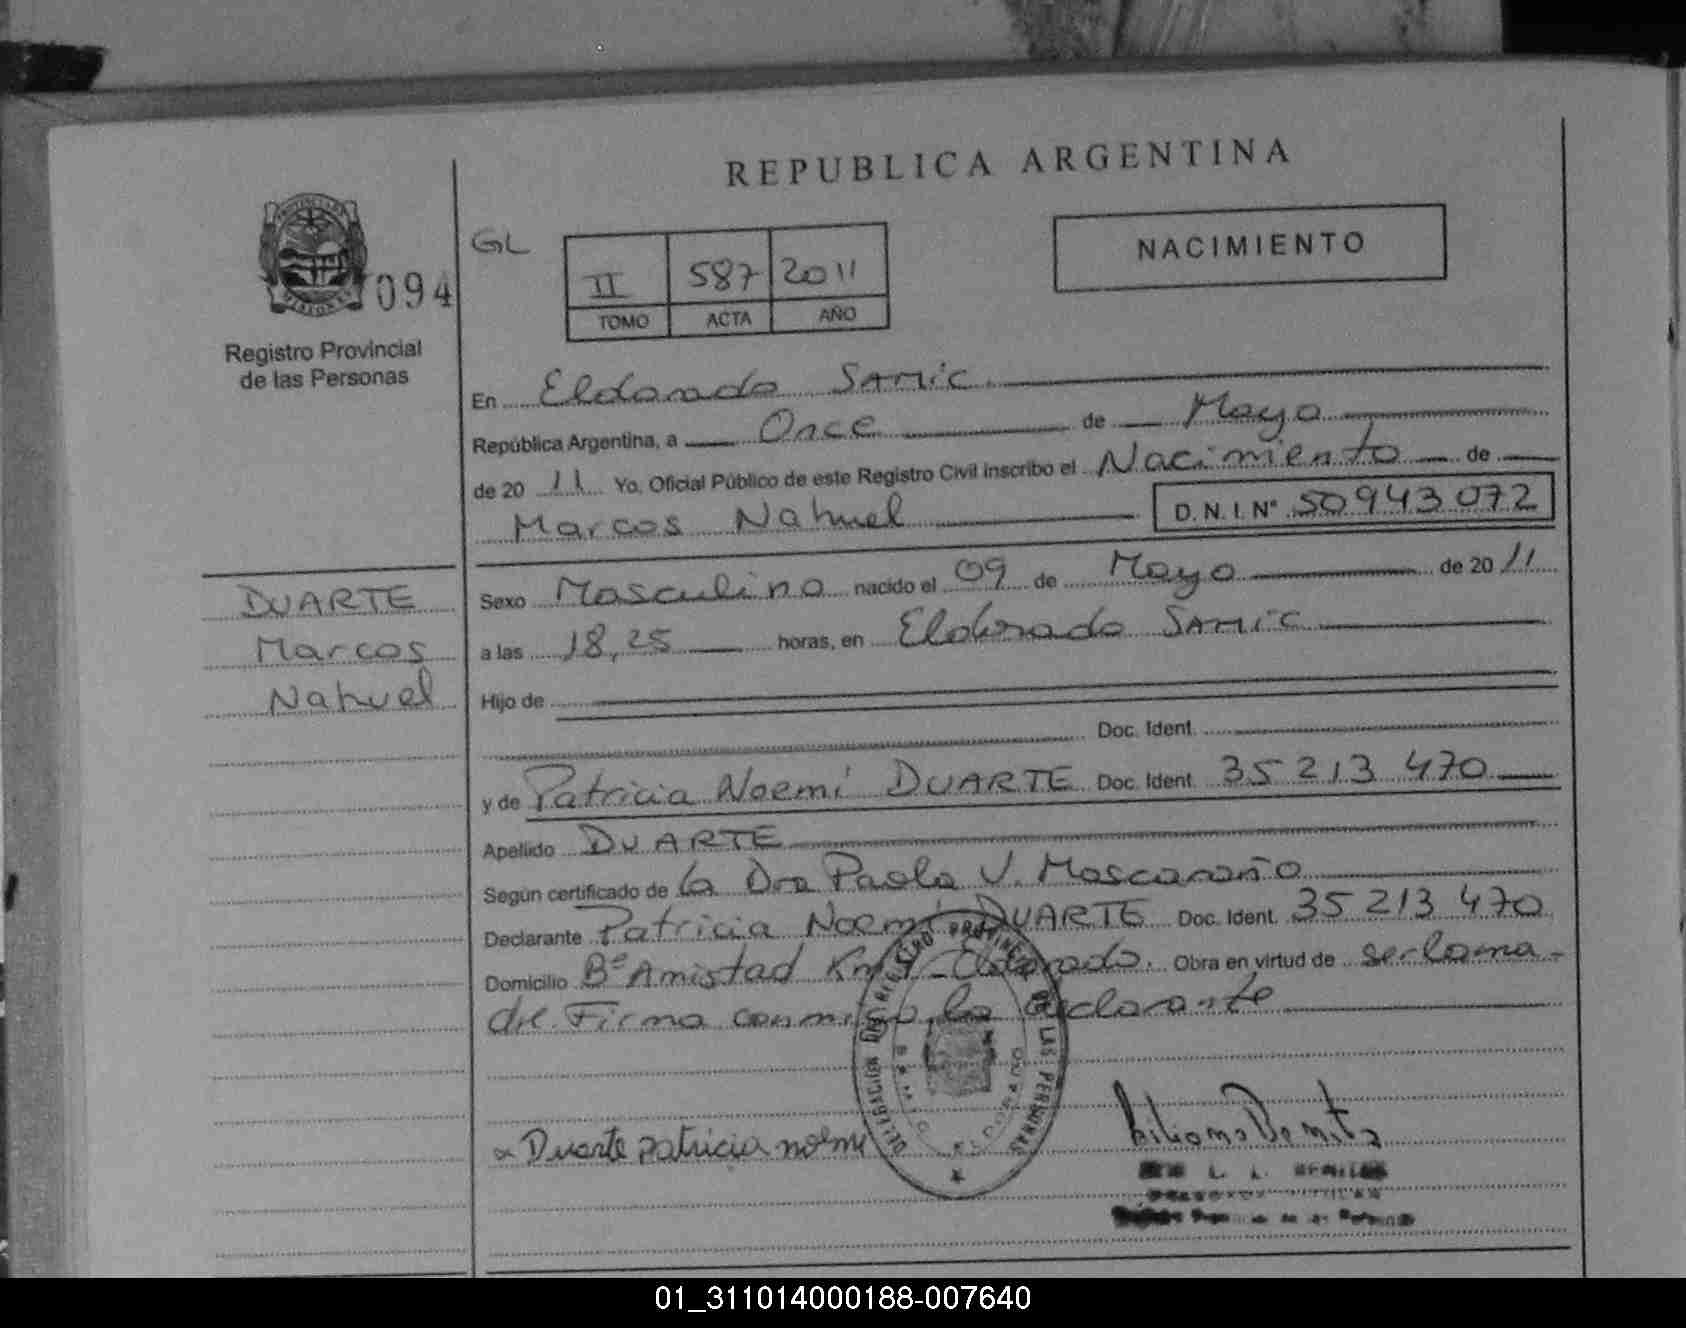 REPUBLICA ARGENTINA
PROVINCIA DE
MISIONES
094
Registro Provincial
de las Personas
GL
II 587 2011
TOMO ACTA AÑO
NACIMIENTO
En Eldorado SAMIC
República Argentina, a Once de Mayo
de 20 11 Yo, Oficial Público de este Registro Civil inscribo el Nacimiento de
Marcos Nahuel D.N.I.Nº 50 943 072
DUARTE
Marcos
Nahuel
Sexo Masculino nacido el 09 de Mayo de 20 11
a las 18,25 horas, en Eldorado SAMIC
Hijo de
Doc. Ident.
y de Patricia Noemí DUARTE Doc. Ident. 35 213 470
Apellido DUARTE
Según certificado de la Dra Paola V. Mascaraño
Declarante Patricia Noemí DUARTE Doc. Ident. 35 213 470
Domicilio Bº Amistad Km Eldorado. Obra en virtud de ser la ma-
dre. Firma conmigo, la declarante
DELEGACION DEL REGISTRO PROVINCIAL DE LAS PERSONAS
Duarte patricia noemi
01_311014000188-007640